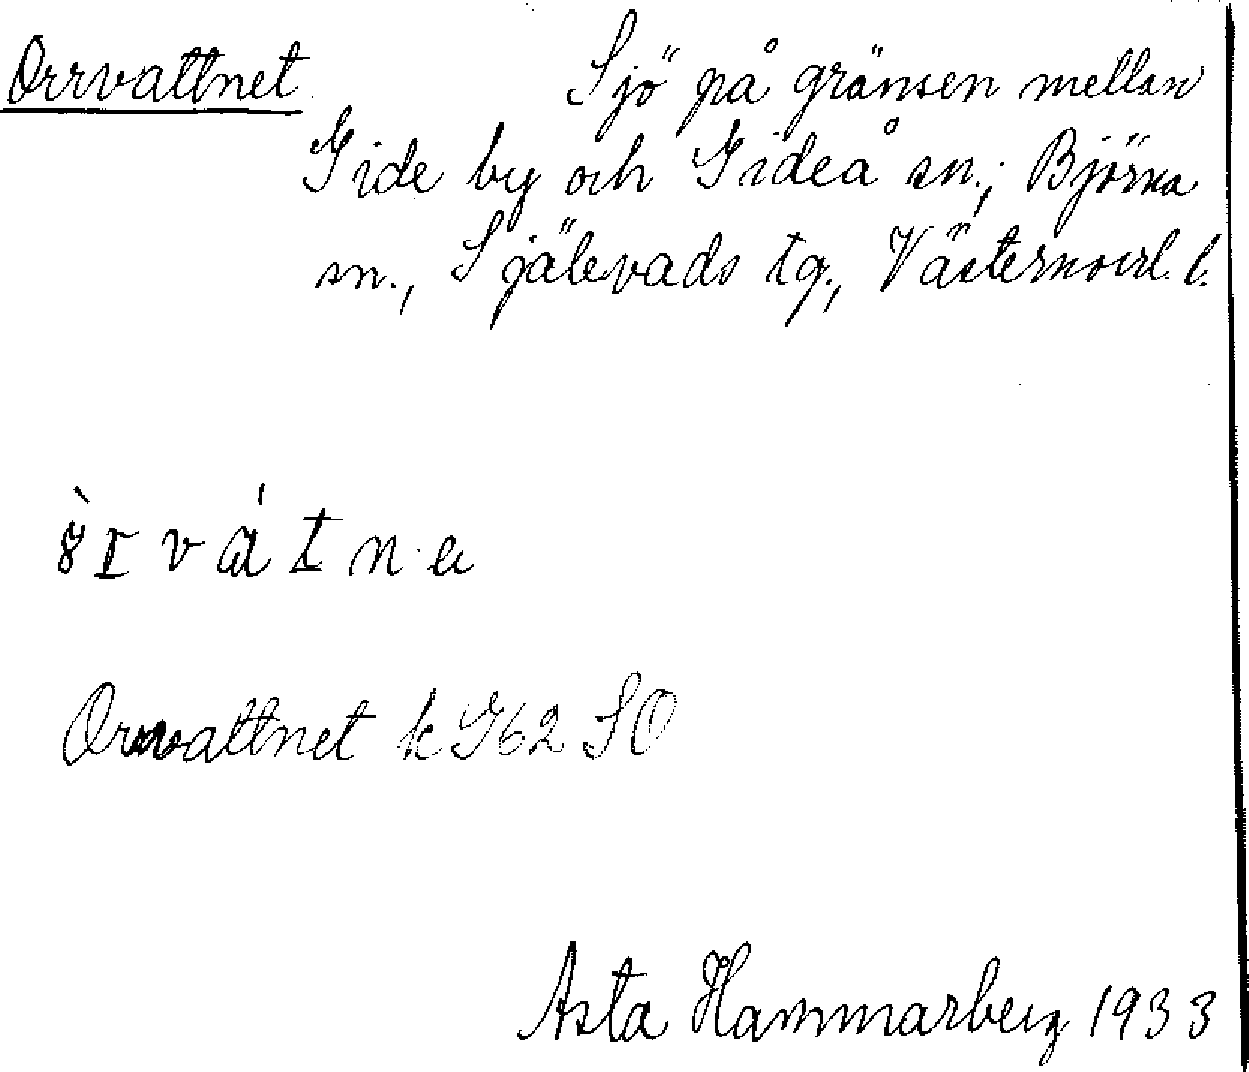 Orrvattnet Sjö på gränsen mellan
Gide by och Gideå sn.; Björna
sn., Själevads tg., Västernorrl. l.
Orrvattnet k G62 SO
Asta Hammarberg 1933